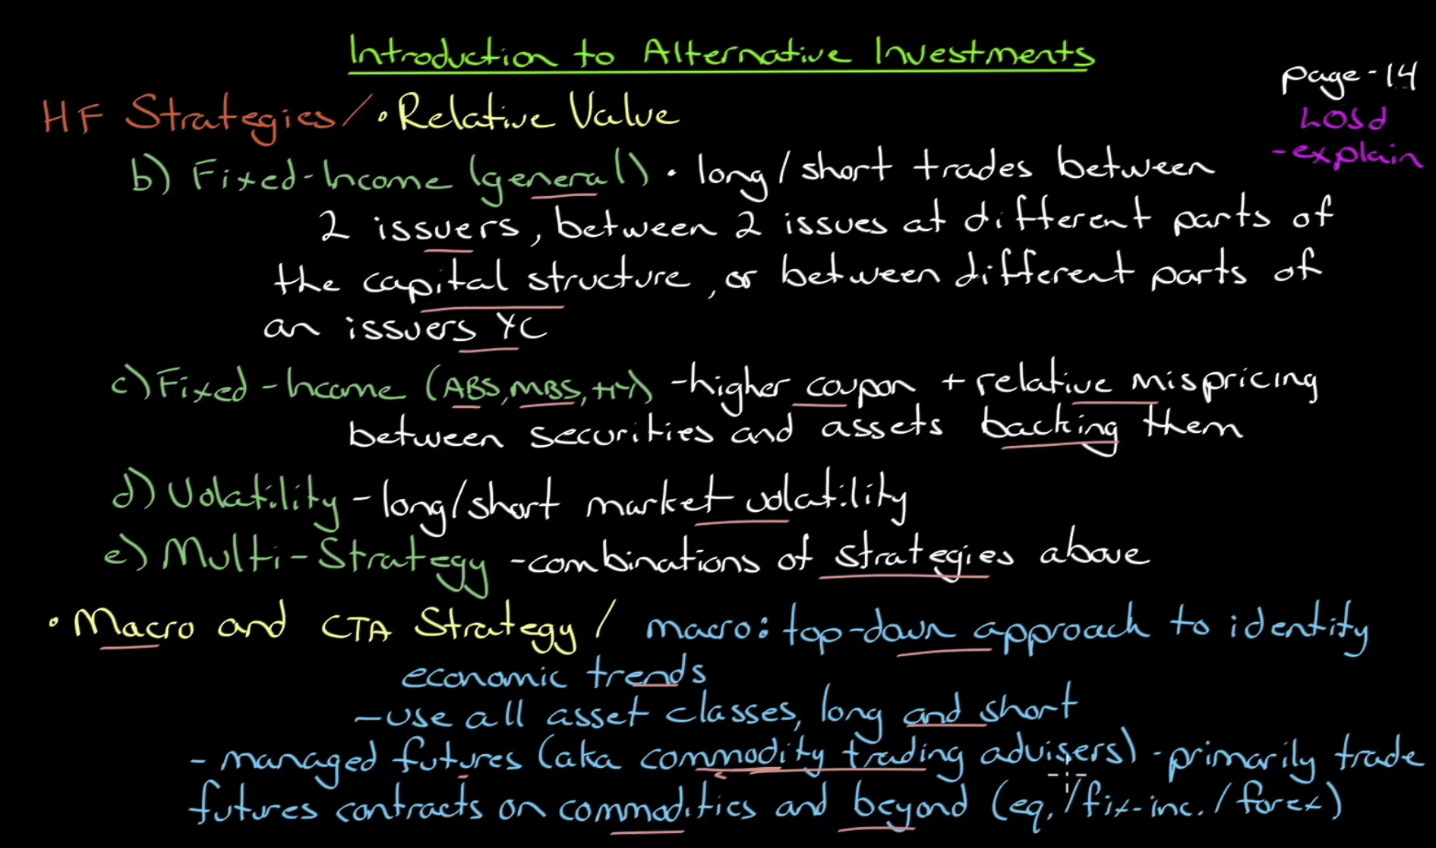 Introduction to Alternative Investments
page-14
LOSd
-explain
HF Strategies/ • Relative Value
b) Fixed-Income (general) • long/short trades between
2 issuers, between 2 issues at different parts of
the capital structure, or between different parts of
an issuers YC
c) Fixed-Income (ABS, MBS, HY) -higher coupon + relative mispricing
between securities and assets backing them
d) Volatility - long/short market volatility
e) Multi-Strategy -combinations of strategies above
• Macro and CTA Strategy / macro: top-down approach to identity
economic trends
-use all asset classes, long and short
- managed futures (aka commodity trading advisers) - primarily trade
futures contracts on commodities and beyond (eq./fix-inc./forex)